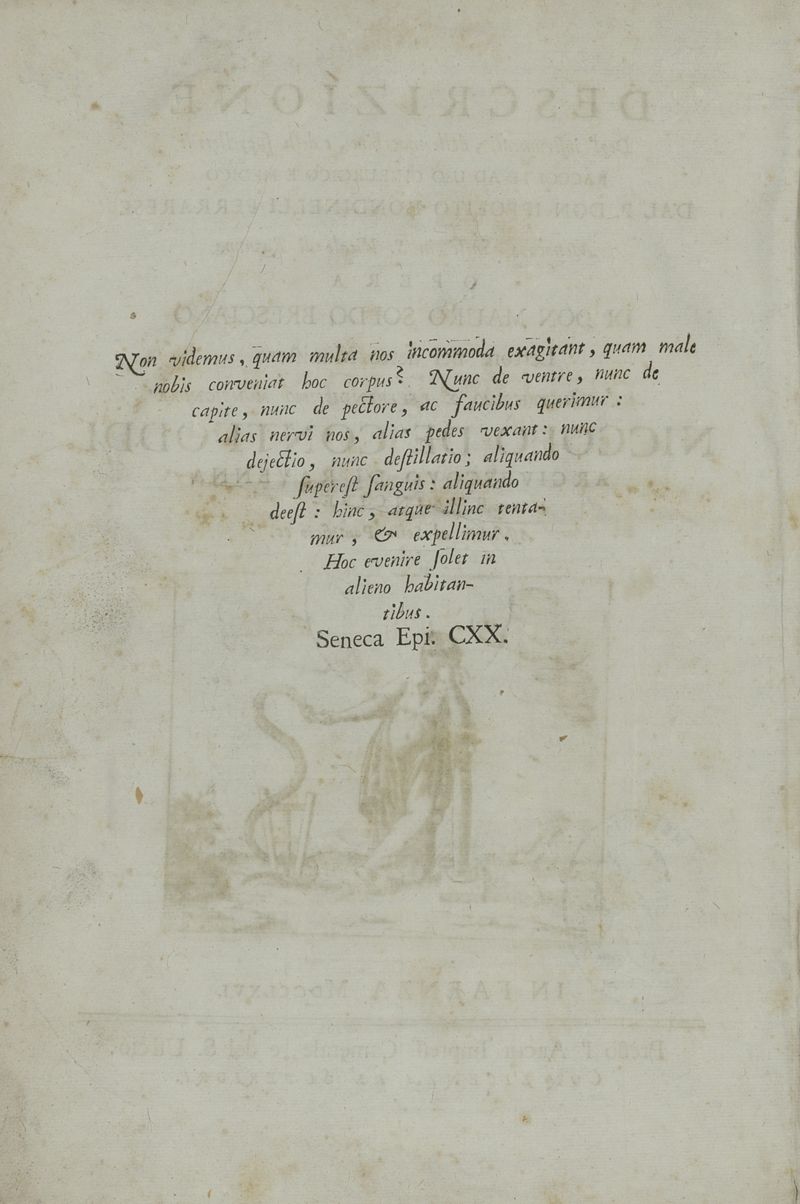 Non videmus, quam multa nos incommoda exagitant, quam male
nobis conveniat hoc corpus? Nunc de ventre, nunc de
capite, nunc de pectore, ac faucibus querimur :
alias nervi nos, alias pedes vexant: nunc
dejectio, nunc deſtillatio; aliquando
ſupereſt ſanguis : aliquando
deeſt : hinc, atque illinc tenta-
mur, & expellimur.
Hoc evenire ſolet in
alieno habitan-
tibus.
Seneca Epi. CXX.